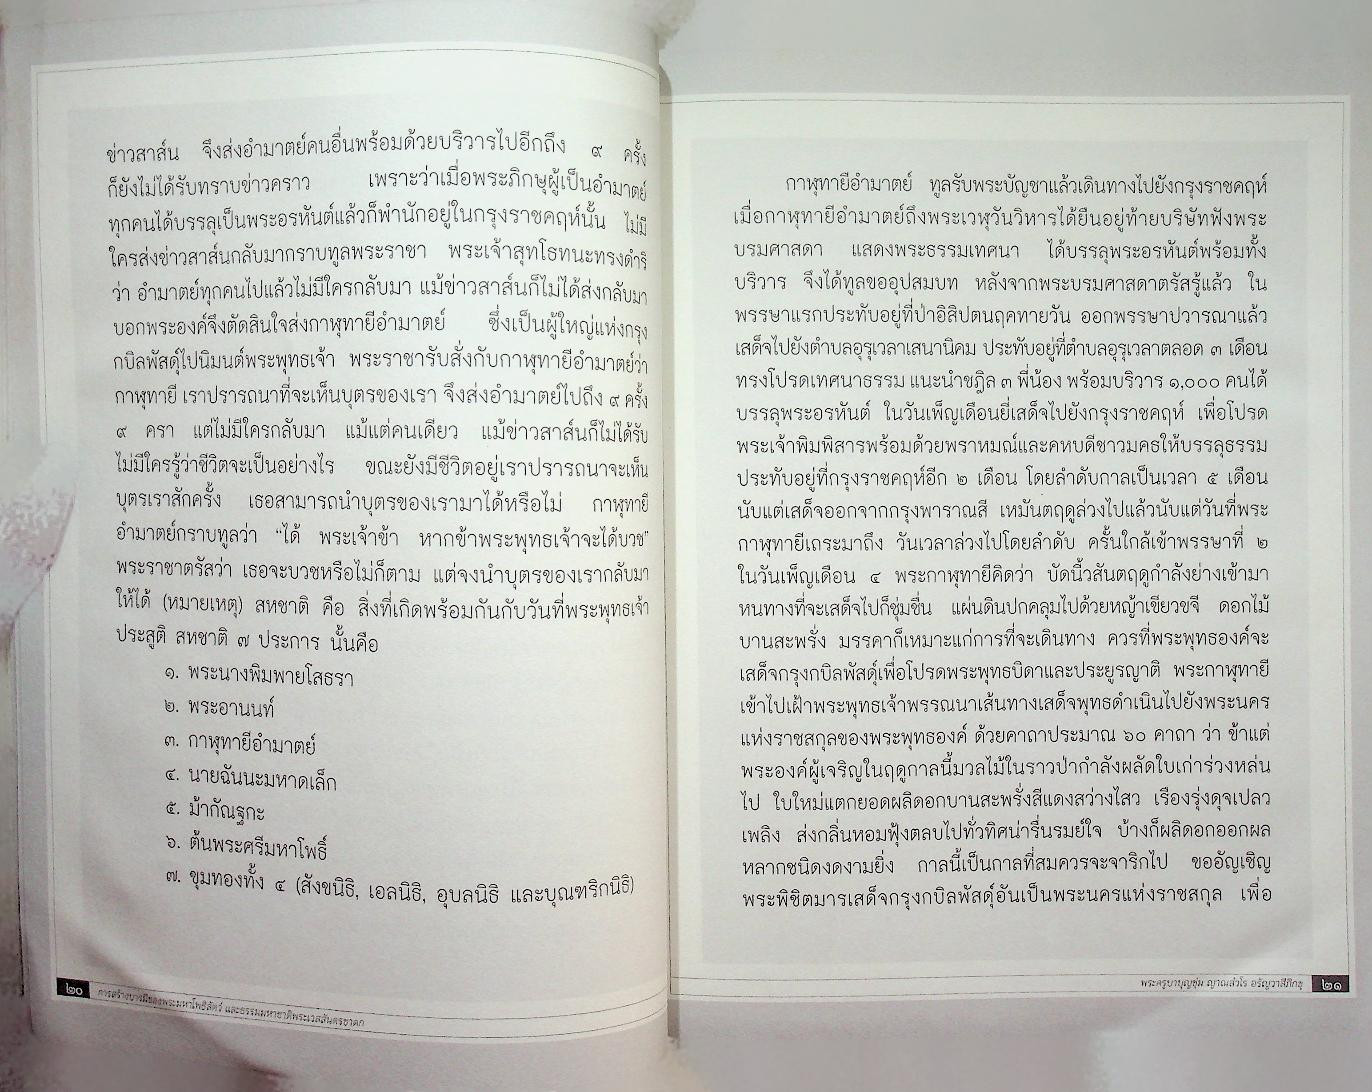 ข่าวสาส์น จึงส่งอำมาตย์คนอื่นพร้อมด้วยบริวารไปอีกถึง ๙ ครั้ง
ก็ยังไม่ได้รับทราบข่าวคราว เพราะว่าเมื่อพระภิกษุผู้เป็นอำมาตย์
ทุกคนได้บรรลุเป็นพระอรหันต์แล้วก็พำนักอยู่ในกรุงราชคฤห์นั้น ไม่มี
ใครส่งข่าวสาส์นกลับมากราบทูลพระราชา พระเจ้าสุทโธทนะทรงดำริ
ว่า อำมาตย์ทุกคนไปแล้วไม่มีใครกลับมา แม้ข่าวสาส์นก็ไม่ได้ส่งกลับมา
บอกพระองค์จึงตัดสินใจส่งกาฬุทายีอำมาตย์ ซึ่งเป็นผู้ใหญ่แห่งกรุง
กบิลพัสดุ์ไปนิมนต์พระพุทธเจ้า พระราชารับสั่งกับกาฬุทายีอำมาตย์ว่า
กาฬุทายี เราปรารถนาที่จะเห็นบุตรของเรา จึงส่งอำมาตย์ไปถึง ๙ ครั้ง
๙ ครา แต่ไม่มีใครกลับมา แม้แต่คนเดียว แม้ข่าวสาส์นก็ไม่ได้รับ
ไม่มีใครรู้ว่าชีวิตจะเป็นอย่างไร ขณะยังมีชีวิตอยู่เราปรารถนาจะเห็น
บุตรเราสักครั้ง เธอสามารถนำบุตรของเรามาได้หรือไม่ กาฬุทายี
อำมาตย์กราบทูลว่า “ได้ พระเจ้าข้า หากข้าพระพุทธเจ้าจะได้บวช”
พระราชาตรัสว่า เธอจะบวชหรือไม่ก็ตาม แต่จงนำบุตรของเรากลับมา
ให้ได้ (หมายเหตุ) สหชาติ คือ สิ่งที่เกิดพร้อมกันกับวันที่พระพุทธเจ้า
ประสูติ สหชาติ ๗ ประการ นั้นคือ
๑. พระนางพิมพายโสธรา
๒. พระอานนท์
๓. กาฬุทายีอำมาตย์
๔. นายฉันนะมหาดเล็ก
๕. ม้ากัณฐกะ
๖. ต้นพระศรีมหาโพธิ์
๗. ขุมทองทั้ง ๔ (สังขนิธิ, เอลนิธิ, อุบลนิธิ และบุณฑริกนิธิ)
๒๐ การสร้างบารมีของพระมหาโพธิสัตว์ และธรรมมหาชาติพระเวสสันตรชาดก
กาฬุทายีอำมาตย์ ทูลรับพระบัญชาแล้วเดินทางไปยังกรุงราชคฤห์
เมื่อกาฬุทายีอำมาตย์ถึงพระเวฬุวันวิหารได้ยืนอยู่ท้ายบริษัทฟังพระ
บรมศาสดา แสดงพระธรรมเทศนา ได้บรรลุพระอรหันต์พร้อมทั้ง
บริวาร จึงได้ทูลขออุปสมบท หลังจากพระบรมศาสดาตรัสรู้แล้ว ใน
พรรษาแรกประทับอยู่ที่ป่าอิสิปตนฤคทายวัน ออกพรรษาปวารณาแล้ว
เสด็จไปยังตำบลอุรุเวลาเสนานิคม ประทับอยู่ที่ตำบลอุรุเวลาตลอด ๓ เดือน
ทรงโปรดเทศนาธรรม แนะนำชฎิล ๓ พี่น้อง พร้อมบริวาร ๑,๐๐๐ คนได้
บรรลุพระอรหันต์ ในวันเพ็ญเดือนยี่เสด็จไปยังกรุงราชคฤห์ เพื่อโปรด
พระเจ้าพิมพิสารพร้อมด้วยพราหมณ์และคหบดีชาวมคธให้บรรลุธรรม
ประทับอยู่ที่กรุงราชคฤห์อีก ๒ เดือน โดยลำดับกาลเป็นเวลา ๕ เดือน
นับแต่เสด็จออกจากกรุงพาราณสี เหมันตฤดูล่วงไปแล้วนับแต่วันที่พระ
กาฬุทายีเถระมาถึง วันเวลาล่วงไปโดยลำดับ ครั้นใกล้เข้าพรรษาที่ ๒
ในวันเพ็ญเดือน ๔ พระกาฬุทายีคิดว่า บัดนี้วสันตฤดูกำลังย่างเข้ามา
หนทางที่จะเสด็จไปก็ชุ่มชื่น แผ่นดินปกคลุมไปด้วยหญ้าเขียวขจี ดอกไม้
บานสะพรั่ง มรรคาก็เหมาะแก่การที่จะเดินทาง ควรที่พระพุทธองค์จะ
เสด็จกรุงกบิลพัสดุ์เพื่อโปรดพระพุทธบิดาและประยูรญาติ พระกาฬุทายี
เข้าไปเฝ้าพระพุทธเจ้าพรรณนาเส้นทางเสด็จพุทธดำเนินไปยังพระนคร
แห่งราชสกุลของพระพุทธองค์ ด้วยคาถาประมาณ ๖๐ คาถา ว่า ข้าแต่
พระองค์ผู้เจริญในฤดูกาลนี้มวลไม้ในราวป่ากำลังผลัดใบเก่าร่วงหล่น
ไป ใบใหม่แตกยอดผลิดอกบานสะพรั่งสีแดงสว่างไสว เรืองรุ่งดุจเปลว
เพลิง ส่งกลิ่นหอมฟุ้งตลบไปทั่วทิศน่ารื่นรมย์ใจ บ้างก็ผลิดอกออกผล
หลากชนิดงดงามยิ่ง กาลนี้เป็นกาลที่สมควรจะจาริกไป ขออัญเชิญ
พระพิชิตมารเสด็จกรุงกบิลพัสดุ์อันเป็นพระนครแห่งราชสกุล เพื่อ
พระครูบาบุญชุ่ม ญาณสํวโร อรัญวาสีภิกขุ ๒๑